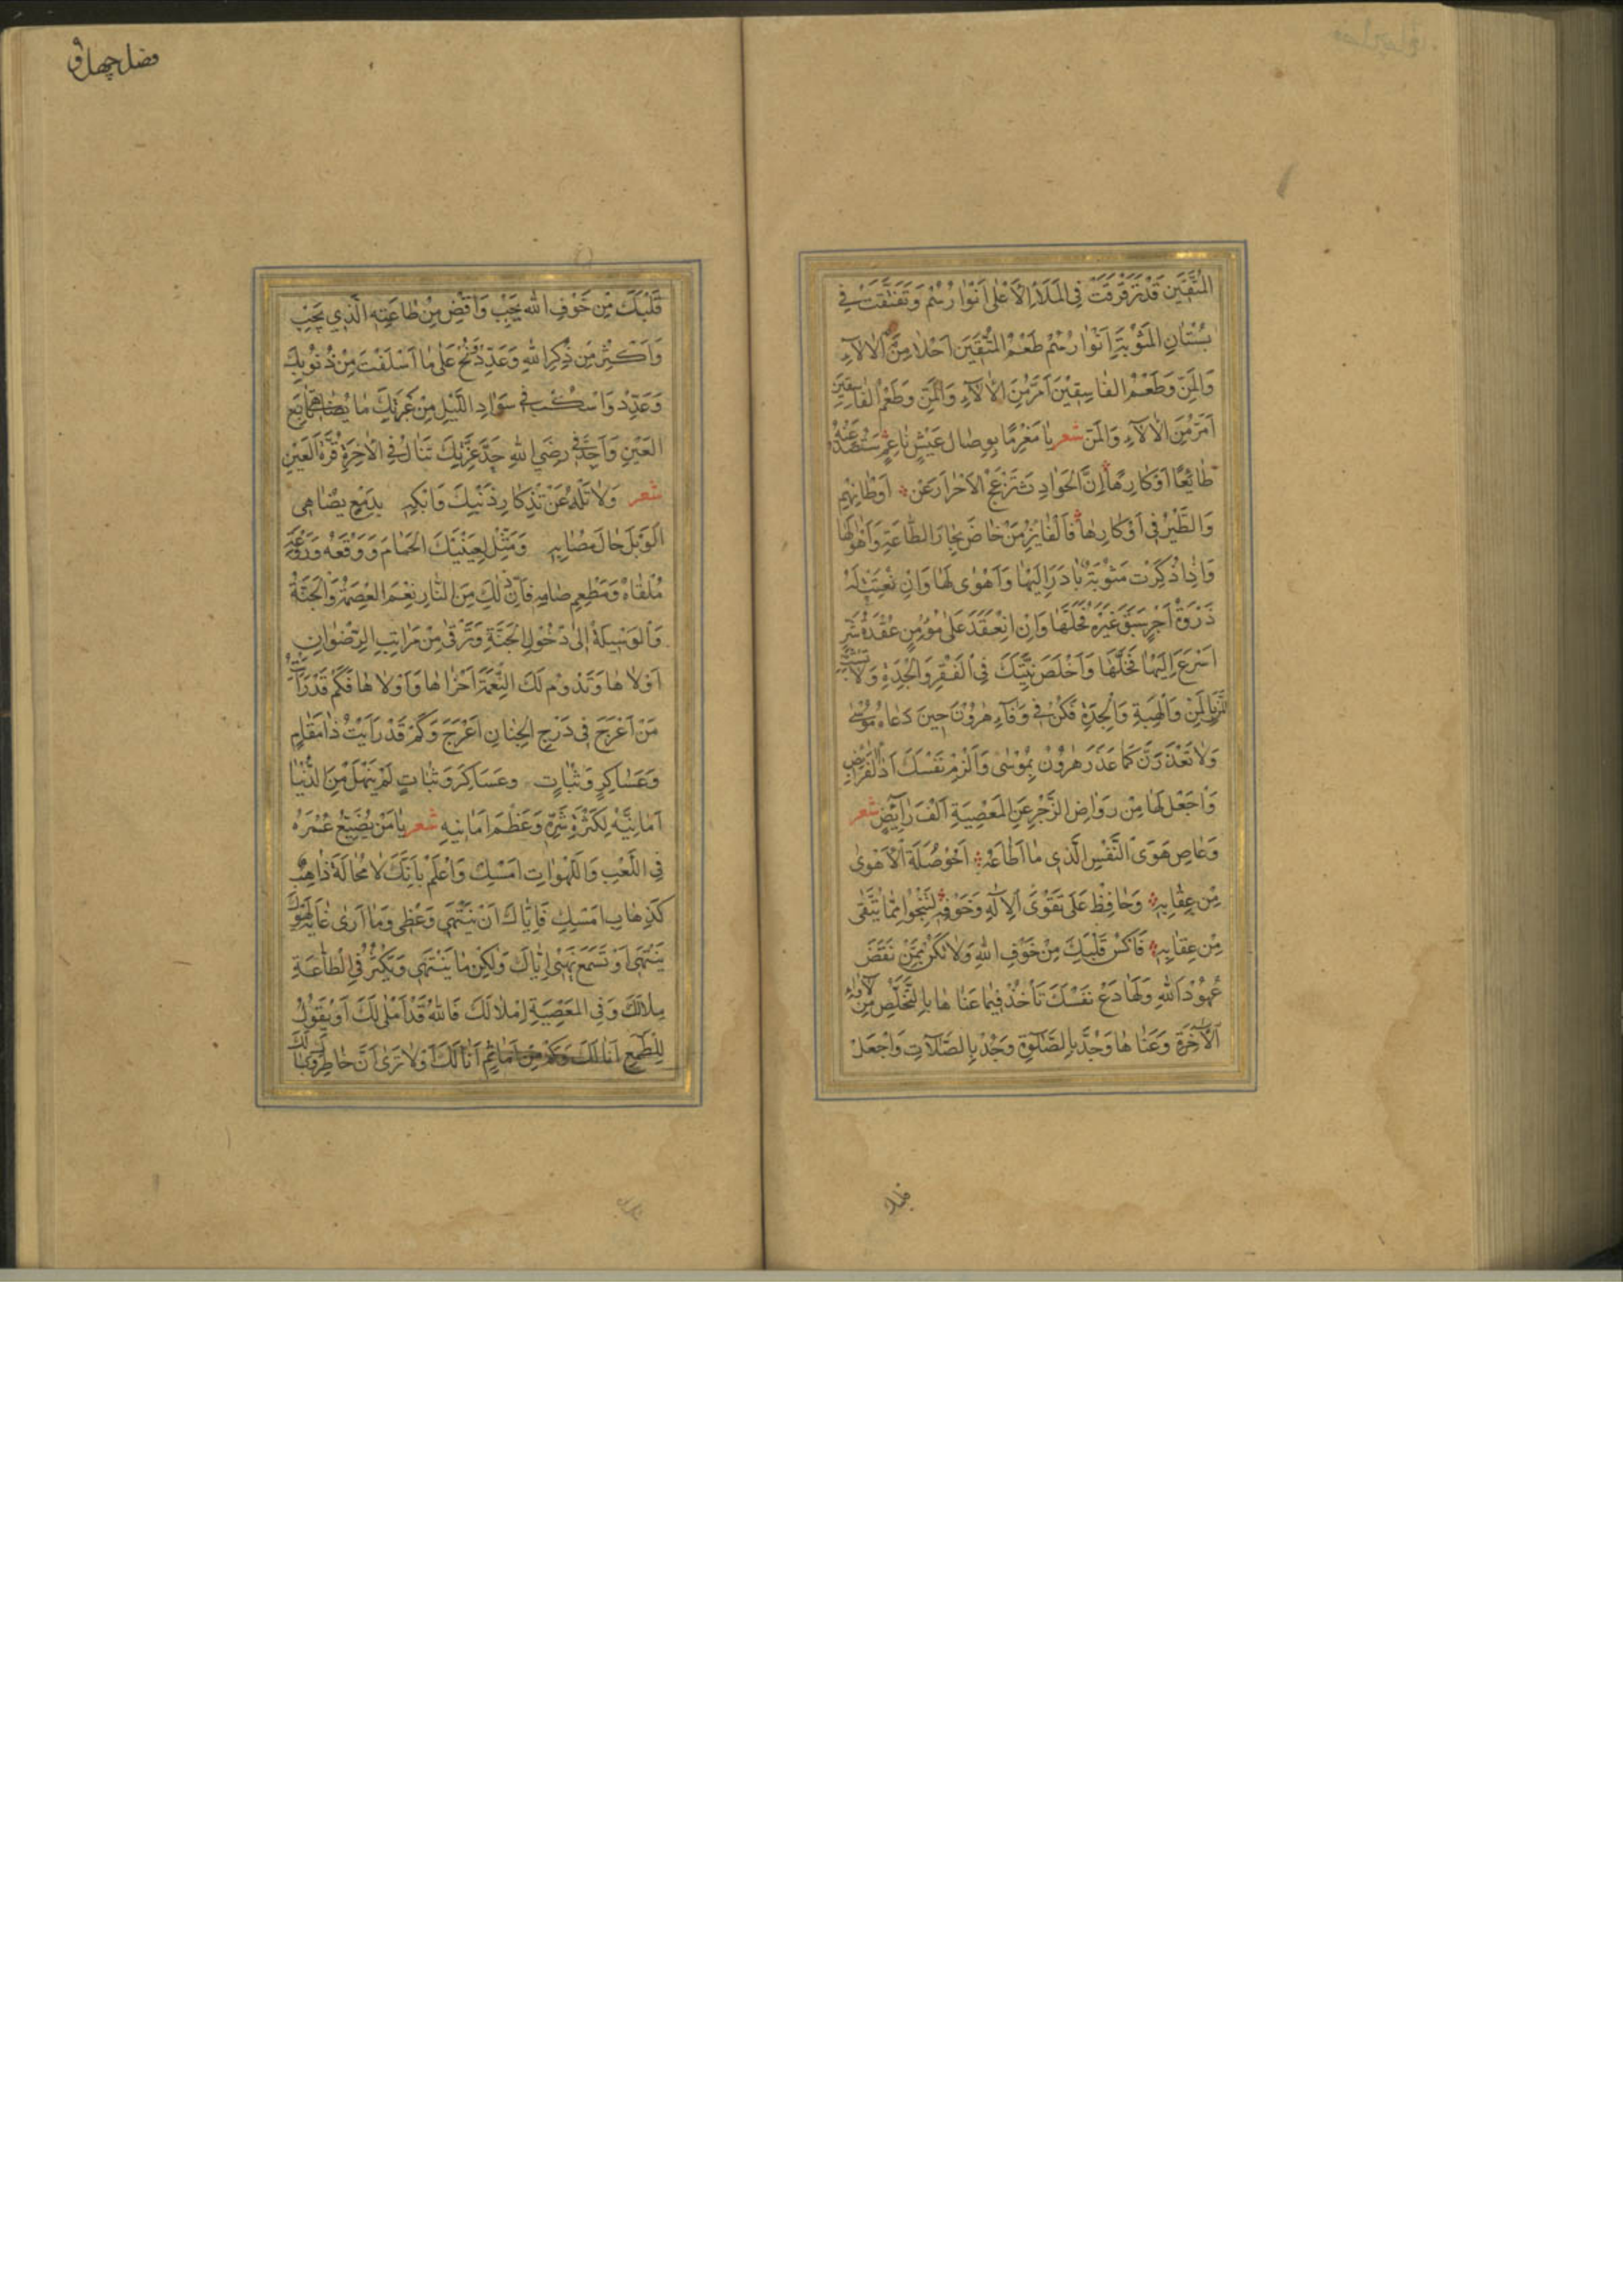 المُتَّقِينَ قَدْ تَرَقْرَقَتْ فِي المَلَأِ الأَعْلَى أَنْوَارُهُمْ وَتَفَتَّقَتْ فِي
بُسْتَانِ المَثُوبَةِ أَنْوَارُهُمْ طَعْمُ المُتَّقِينَ أَحْلَا مِنَ الآلَاءِ
وَالمَنِّ وَطَعْمُ الفَاسِقِينَ أَمَرُّ مِنَ الآلَاءِ وَالمَنِّ وَطَعْمُ الفَاسِقِينَ
أَمَرُّ مِنَ الآلَاءِ وَالمَنِّ شعر يَا مُغْرِمًا بِوِصَالِ عَيْشٍ نَاعِمٍ سَتُصَدُّ عَنْهُ
طَائِعًا أَوْ كَارِهًا إِنَّ الحَوَادِثَ تُزْعِجُ الأَحْرَارَ عَنْ أَوْطَانِهِمْ
وَالطَّيْرَ فِي أَوْكَارِهَا فَالْفَائِزُ مَنْ خَاضَ بِحَارَ الطَّاعَةِ وَأَهْوَالَهَا
وَإِذَا ذُكِرَتْ مَثُوبَةٌ بَادَرَ إِلَيْهَا وَأَهْوَى لَهَا وَإِنْ
ذَرْوَةُ أَجْرٍ سَبَقَ غَيْرَهُ وَإِنِ انْعَقَدَ عَلَى مُؤْمِنٍ عُقْدَةُ شَرٍّ
أَسْرَعَ إِلَيْهَا فَحَلَّهَا وَأَخْلَصَ نِيَّتَكَ فِي الْفَقْرِ وَالْجِدَةِ وَلَا
بِالمَنِّ وَالْهِبَةِ وَالْجِدَةِ فَكُنْ فِي وَفَاءِ هَرُونَ حِينَ دَعَاهُ مُوسَى
وَلَا تَغْدُرَنَّ كَمَا غَدَرَ هَرُونُ بِمُوسَى وَأَلْزِمْ نَفْسَكَ أَدَاءَ الفَرَائِضِ
وَاجْعَلْ لَهَا مِنْ رَوَاضِ الزَّجْرِ عَنِ المَعْصِيَةِ أَلْفَ رَائِضٍ شعر
وَعَاصِ هَوَى النَّفْسِ الَّذِي مَا أَطَاعَهُ أَخُو ضَلَّةٍ إِلَّا هَوَى
مِنْ عِقَابِهِ وَحَافِظْ عَلَى تَقْوَى الإِلَهِ وَخَوْفِهِ لِتَنْجُوَ مِمَّا يُتَّقَى
مِنْ عِقَابِهِ فَاكْسُ قَلْبَكَ مِنْ خَوْفِ اللهِ وَلَا تَكُنْ مِمَّنْ نَقَضَ
عُهُودَ اللهِ وَلَهَا دَعْ نَفْسَكَ تَأْخُذُ فِيمَا عَنَاهَا بِالتَّخَلُّصِ مِنْ
الآخِرَةِ وَعَنَاهَا وَجُدَّ بِالصَّلَوةِ وَجُدْ بِالصَّلَاتِ وَاجْعَلْ
فصل چهل
قَلْبَكَ مِنْ خَوْفِ اللهِ يَجِبْ وَاقْضِ مِنْ طَاعَتِهِ الَّذِي يَجِبْ
وَأَكْثِرْ مِنْ ذِكْرِ اللهِ وَعَدِّدْ وَنُحْ عَلَى مَا أَسْلَفْتَ مِنْ ذُنُوبِكَ
وَعَدِّدْ وَاسْكُبْ فِي سَوَادِ اللَّيْلِ مِنْ عَبْرَتِكَ مَا
العَيْنِ وَاجِدَّ فِي رِضَى اللهِ جِدَّ عَزْمِكَ تَنَالُ فِي الْآخِرَةِ قُرَّةَ العَيْنِ
شعر وَلَا تَلْهُ عَنْ تَذْكَارِ ذَنْبِكَ وَابْكِهِ بِدَمْعٍ يُضَاهِي
الْوَبْلَ حَالَ مَصَابِهِ وَمَثِّلْ لِعَيْنَيْكَ الحِمَامَ وَوَقْعَهُ وَرَوْعَةَ
مُلْقَاهُ وَمَطْعَمِ صَابِهِ فَإِنَّ ذَلِكَ مِنَ النَّارِ نِعْمَ العِصْمَةُ وَالْجَنَّةُ
وَالوَسِيلَةُ إِلَى دُخُولِ الجَنَّةِ وَتَرْقَى مِنْ مَرَاتِبِ الرِّضْوَانِ
أَوْلَاهَا وَتَدُومُ لَكَ النِّعْمَةُ أُخْرَاهَا وَأُوْلَاهَا فَكَمْ قَدْ رَأَيْتَ
مَنْ أَعْرَجَ فِي دَرَجِ الجِنَانِ أَعْرَجَ وَكَمْ قَدْ رَأَيْتُ ذَا
وَعَسَاكِرٍ وَثُبَاتٍ وَعَسَاكِرَ وَثَبَاتٍ لَمْ يَنَلْ مِنَ الدُّنْيَا
أَمَانِيَّهُ لِكَثْرَةِ شَرِّهِ وَعَظُمَ أَمَانِيهِ شعر يَا مَنْ يُضَيِّعُ عُمْرَهُ
فِي اللَّعْبِ وَاللَّهْوَاتِ أَمْسِكْ وَاعْلَمْ بِأَنَّكَ لَا مَحَالَةَ ذَاهِبٌ
كَذِهَابِ أَمْسِكَ فَإِيَّاكَ أَنْ يَنْتَهِي وَعْظِي وَمَا أَرَى
يَنْتَهِي أَوْ تَسْمَعَ نَهْيِي إِيَّاكَ وَلَكِنْ مَا يَنْتَهِي وَيَكْثُرُ فِي الطَّاعَةِ
مِلَالَكَ وَفِي المَعْصِيَةِ إِمْلَالَكَ فَاللهُ قَدْ أَمْلَى لَكَ أَوْ يَقُولُ
لِلطَّمَعِ أَنَا لَكَ أَنَا لَكَ أَوَلَا تَرَى أَنَّ خَاطِرَ